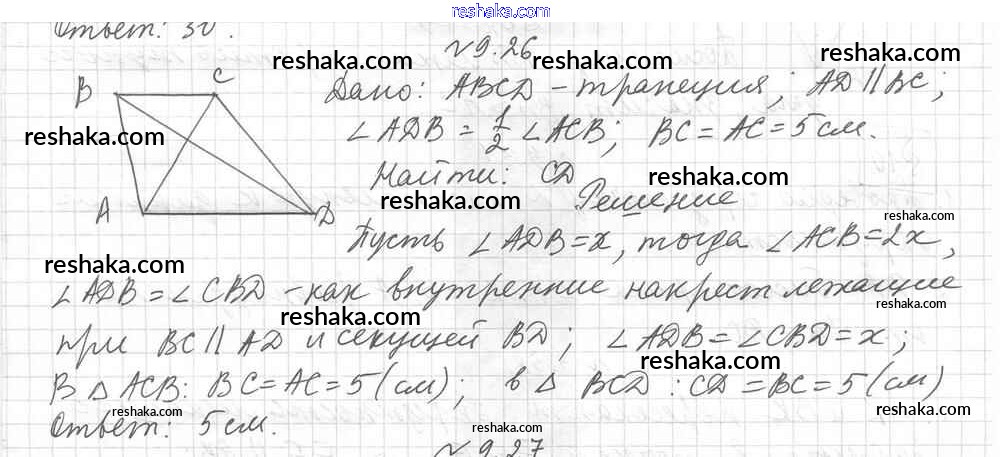 reshaka.com
Ответ: 30°.
№9.26
reshaka.com reshaka.com
B C Дано: ABCD - трапеция; AD || BC;
reshaka.com
∠ADB = 1/2 ∠ACB; BC = AC = 5 см.
Найти: CD
reshaka.com reshaka.com
Решение
A D
reshaka.com
Пусть ∠ADB = x, тогда ∠ACB = 2x,
reshaka.com
∠ADB = ∠CBD - как внутренние накрест лежащие
reshaka.com reshaka.com
при BC || AD и секущей BD; ∠ADB = ∠CBD = x;
reshaka.com
В △ ACB: BC = AC = 5 (см); в △ BCD: CD = BC = 5 (см)
reshaka.com reshaka.com
Ответ: 5 см.
reshaka.com
№9.27